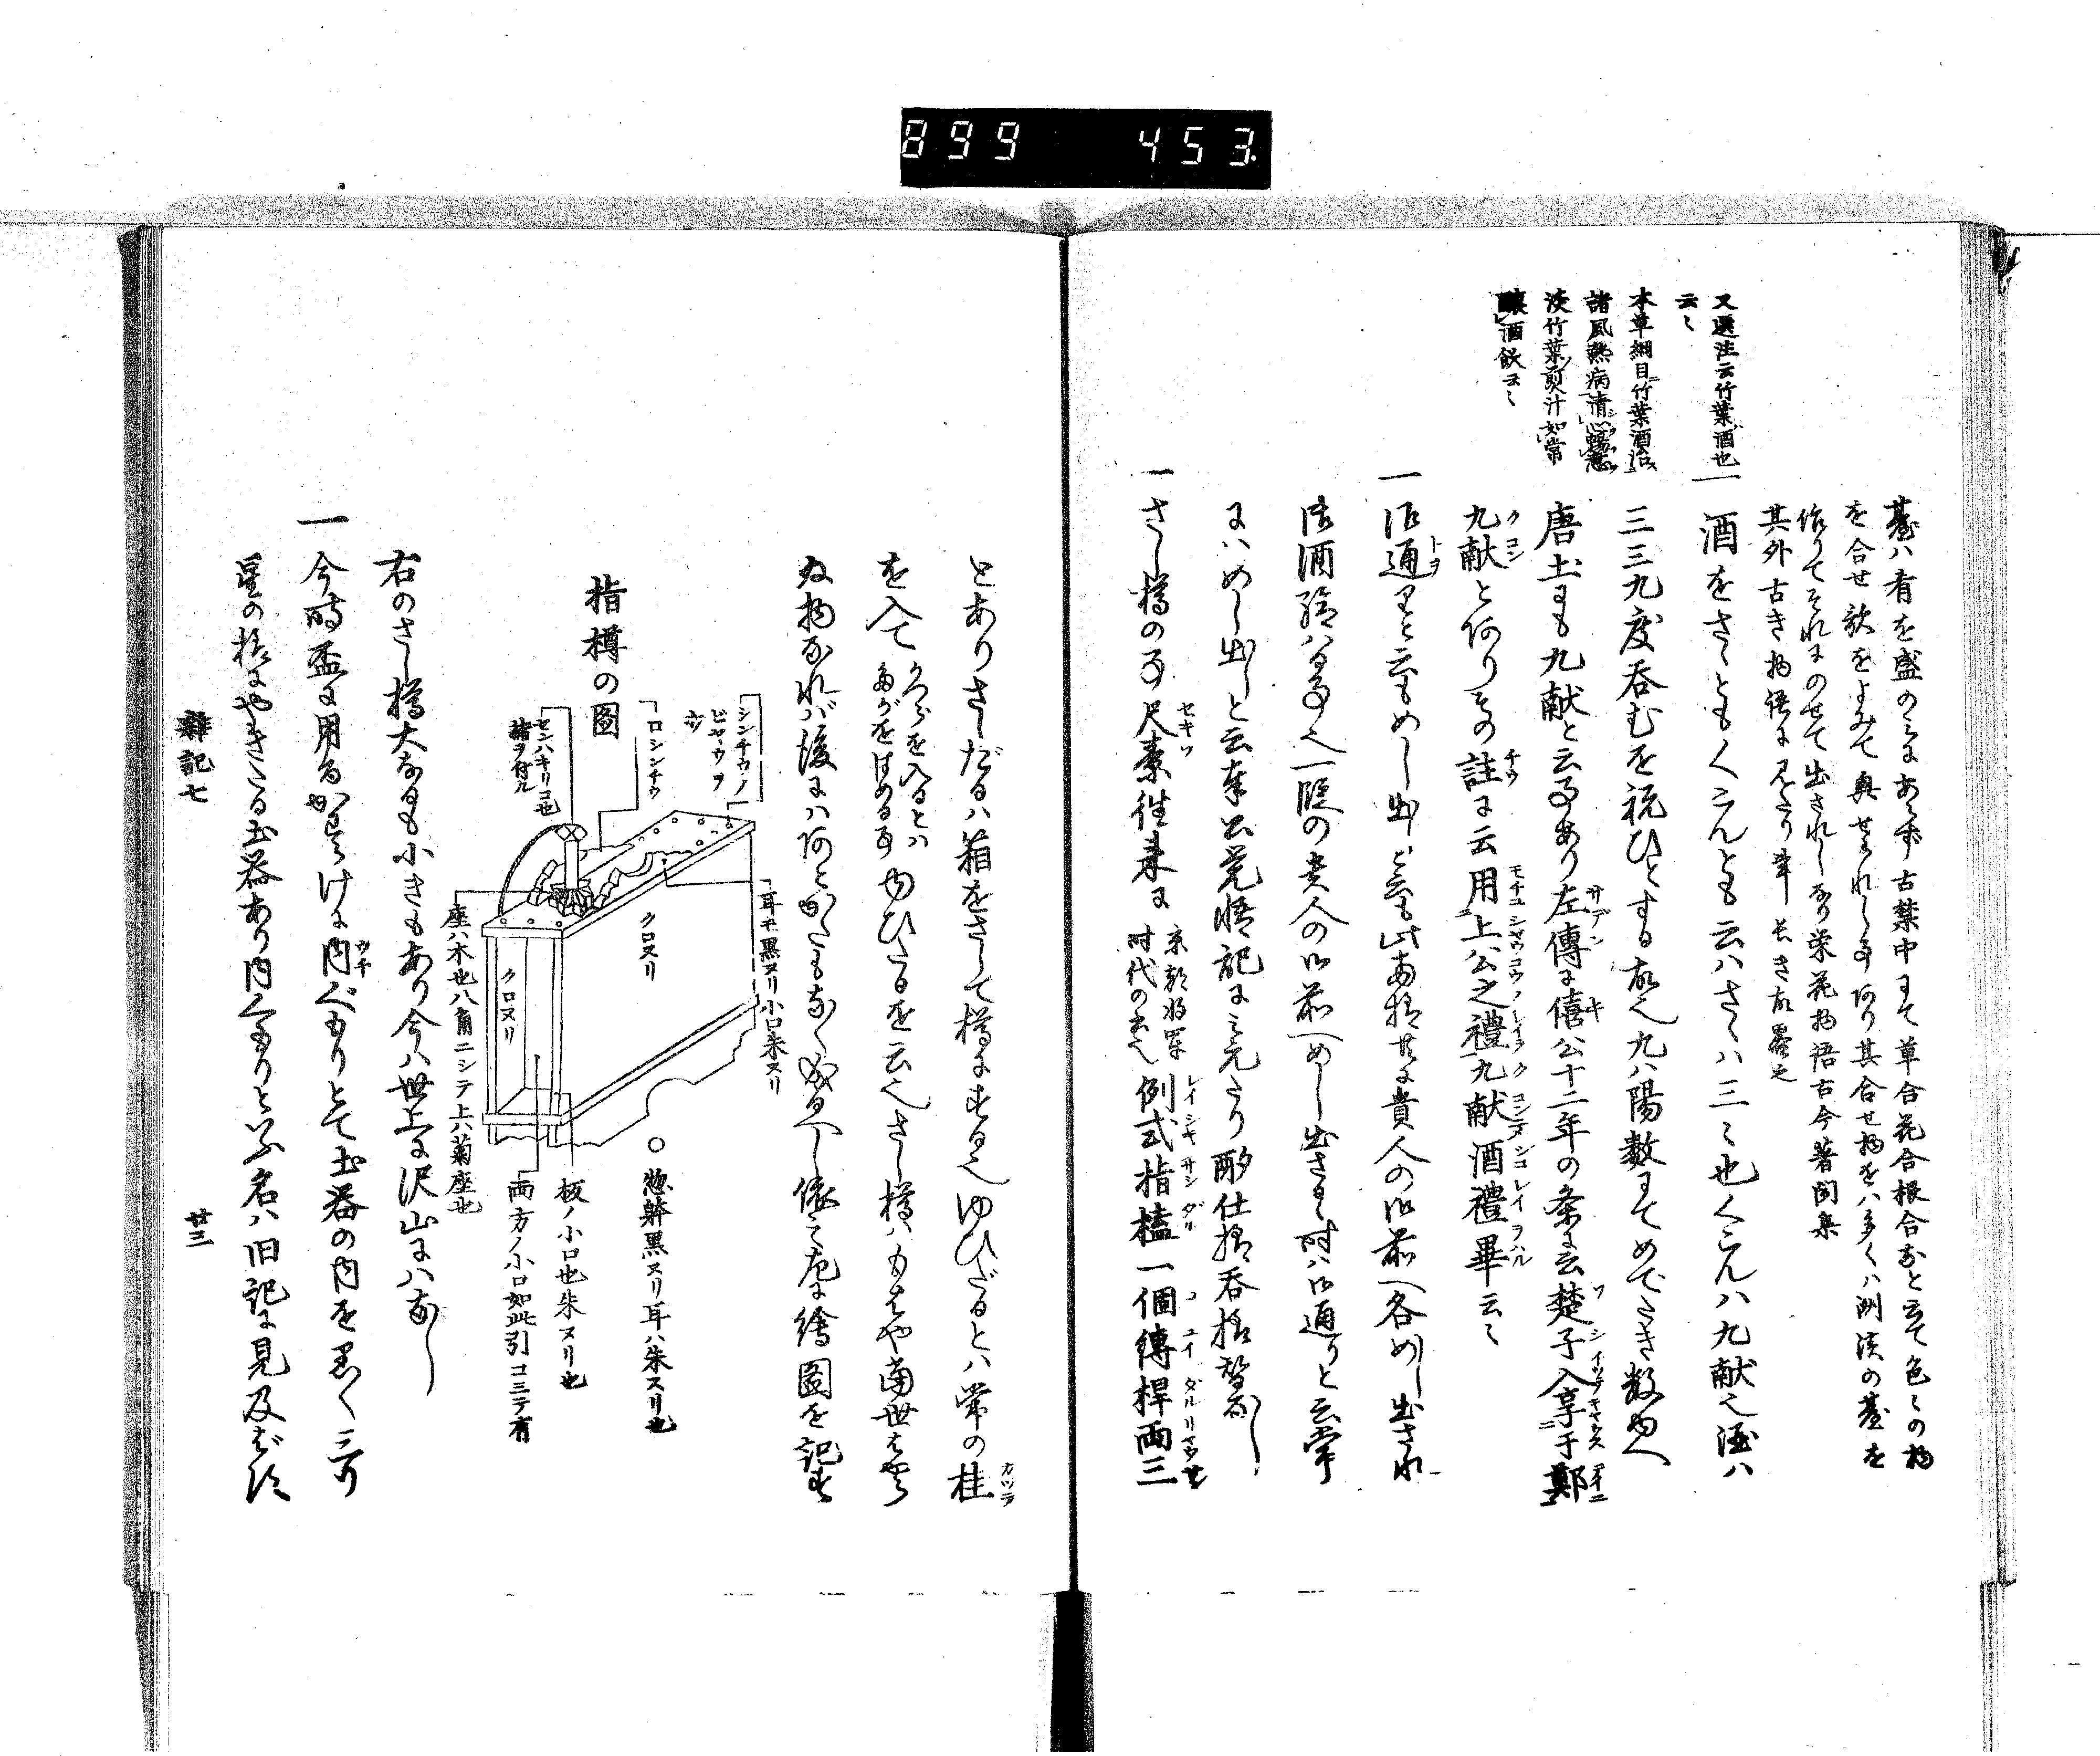 899 453
又選注云竹葉酒也
云々
本草綱目竹葉酒治
諸風熱病清心暢意
淡竹葉煎汁如常
釀酒飲云々
臺ハ肴を盛のミにあらず古禁中にて草合花合根合なと云て色々の物
を合せ歌をよみて興せられし事あり其合せ物をハ多くハ洲濱の臺を
作りてそれにのせて出されしなり栄花物語古今著聞集
其外古き物語に見えたり事長き故畧之
一酒をさゝともくこんとも云ハさゝハ三ミ也くこんハ九献也酒ハ
三三九度呑むを祝ひとする故也九ハ陽数にてめでたき数ゆへ
唐土にも九献と云事あり左傳に僖公十二年の条に云楚子入享于鄭
九献とありその註に云用上公之禮九献酒禮畢云々
一御通りと云もめし出しと云も此お様共に貴人の御前へ各めし出され
御酒給ハる事也一段の貴人の御前へめし出さるゝ時ハ御通りと云常
にハめし出しと云奉公覚悟記に見えたり酌仕様呑様替なし
一さし樽の事尺素往来に 京都将軍時代の書也 例式指榼一個縛桿両三
とありさしだるハ箱をさして樽にする也ゆひだるとハ常の桂
を入て かつらを入るとハたがをはめる事 ゆひたるを云也さし樽ハもはや當世はやら
ぬ物なれバ後にハあとかたもなく成るへし依之左に繪圖を記す
指樽の圖
シンチウノ
ビヤウヲ
打
ロシンチウ
センハキリコ也
緒ヲ付ル
クロヌリ
クロヌリ
耳ヰ黒ヌリ小口朱ヌリ
座ハ木也八角ニシテ上六菊座也
○惣躰黒ヌリ耳ハ朱ヌリ也
板ノ小口也朱ヌリ也
両方ノ小口如此引コミテ有
右のさし樽大なるも小きもあり今ハ世上に沢山にハなし
一今時盃に用るかはらけに内ぐもりとて土器の内を黒く三ツ
星の様にやきたる土器あり内ぐもりといふ名ハ旧記に見及ばず
雜記七
廿三